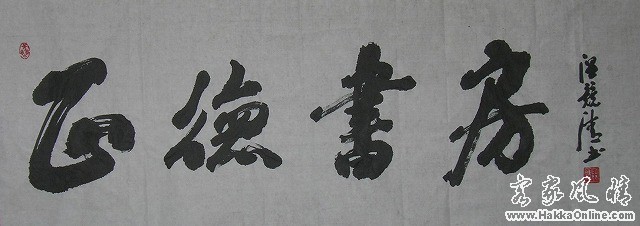 正德書房
客家风情
www.HakkaOnline.com